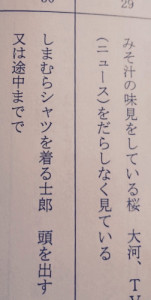 29
みそ汁の味見をしている桜　大河、TV
（ニュース）をだらしなく見ている
30
しまむらシャツを着る士郎　頭を出す
又は途中までで